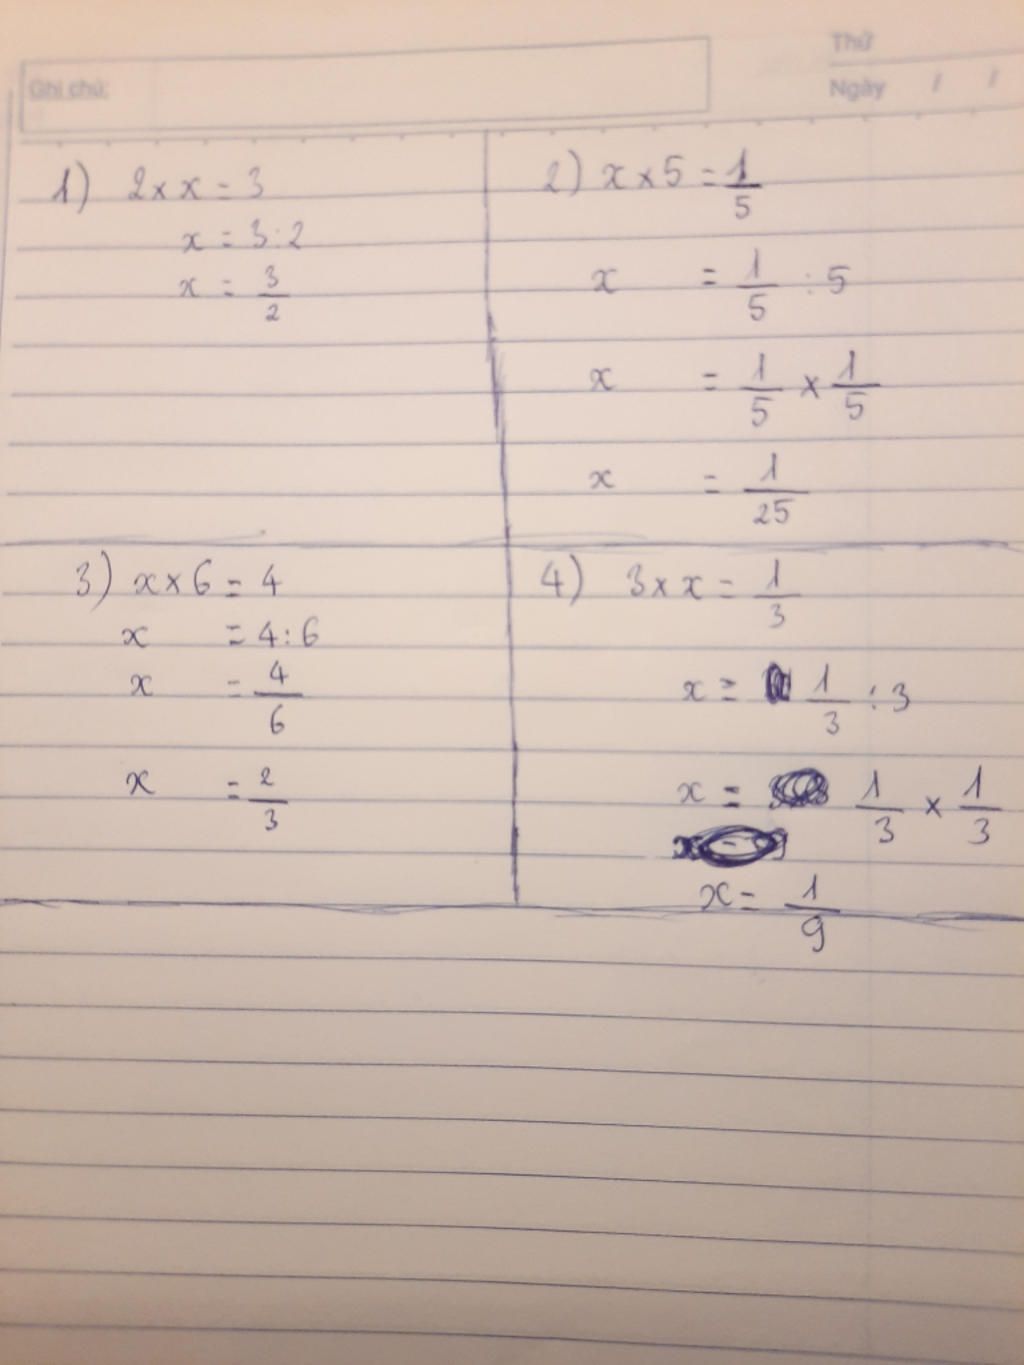 Ghi chú:
Thứ
Ngày / /
1) 2 × x = 3
x = 3 : 2
x = 3/2
2) x × 5 = 1/5
x = 1/5 : 5
x = 1/5 × 1/5
x = 1/25
3) x × 6 = 4
x = 4 : 6
x = 4/6
x = 2/3
4) 3 × x = 1/3
x = 1/3 : 3
x = 1/3 × 1/3
x = 1/9